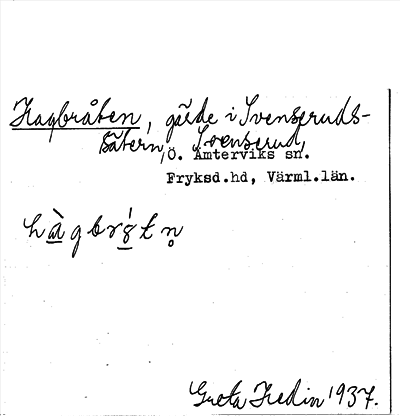 Hagbråten, gärde i Svenseruds-
sätern, Svenserud,
Ö. Ämterviks sn.
Fryksd.hd, Värml.län.
hàgbrótn̥
Greta Hedin 1937.